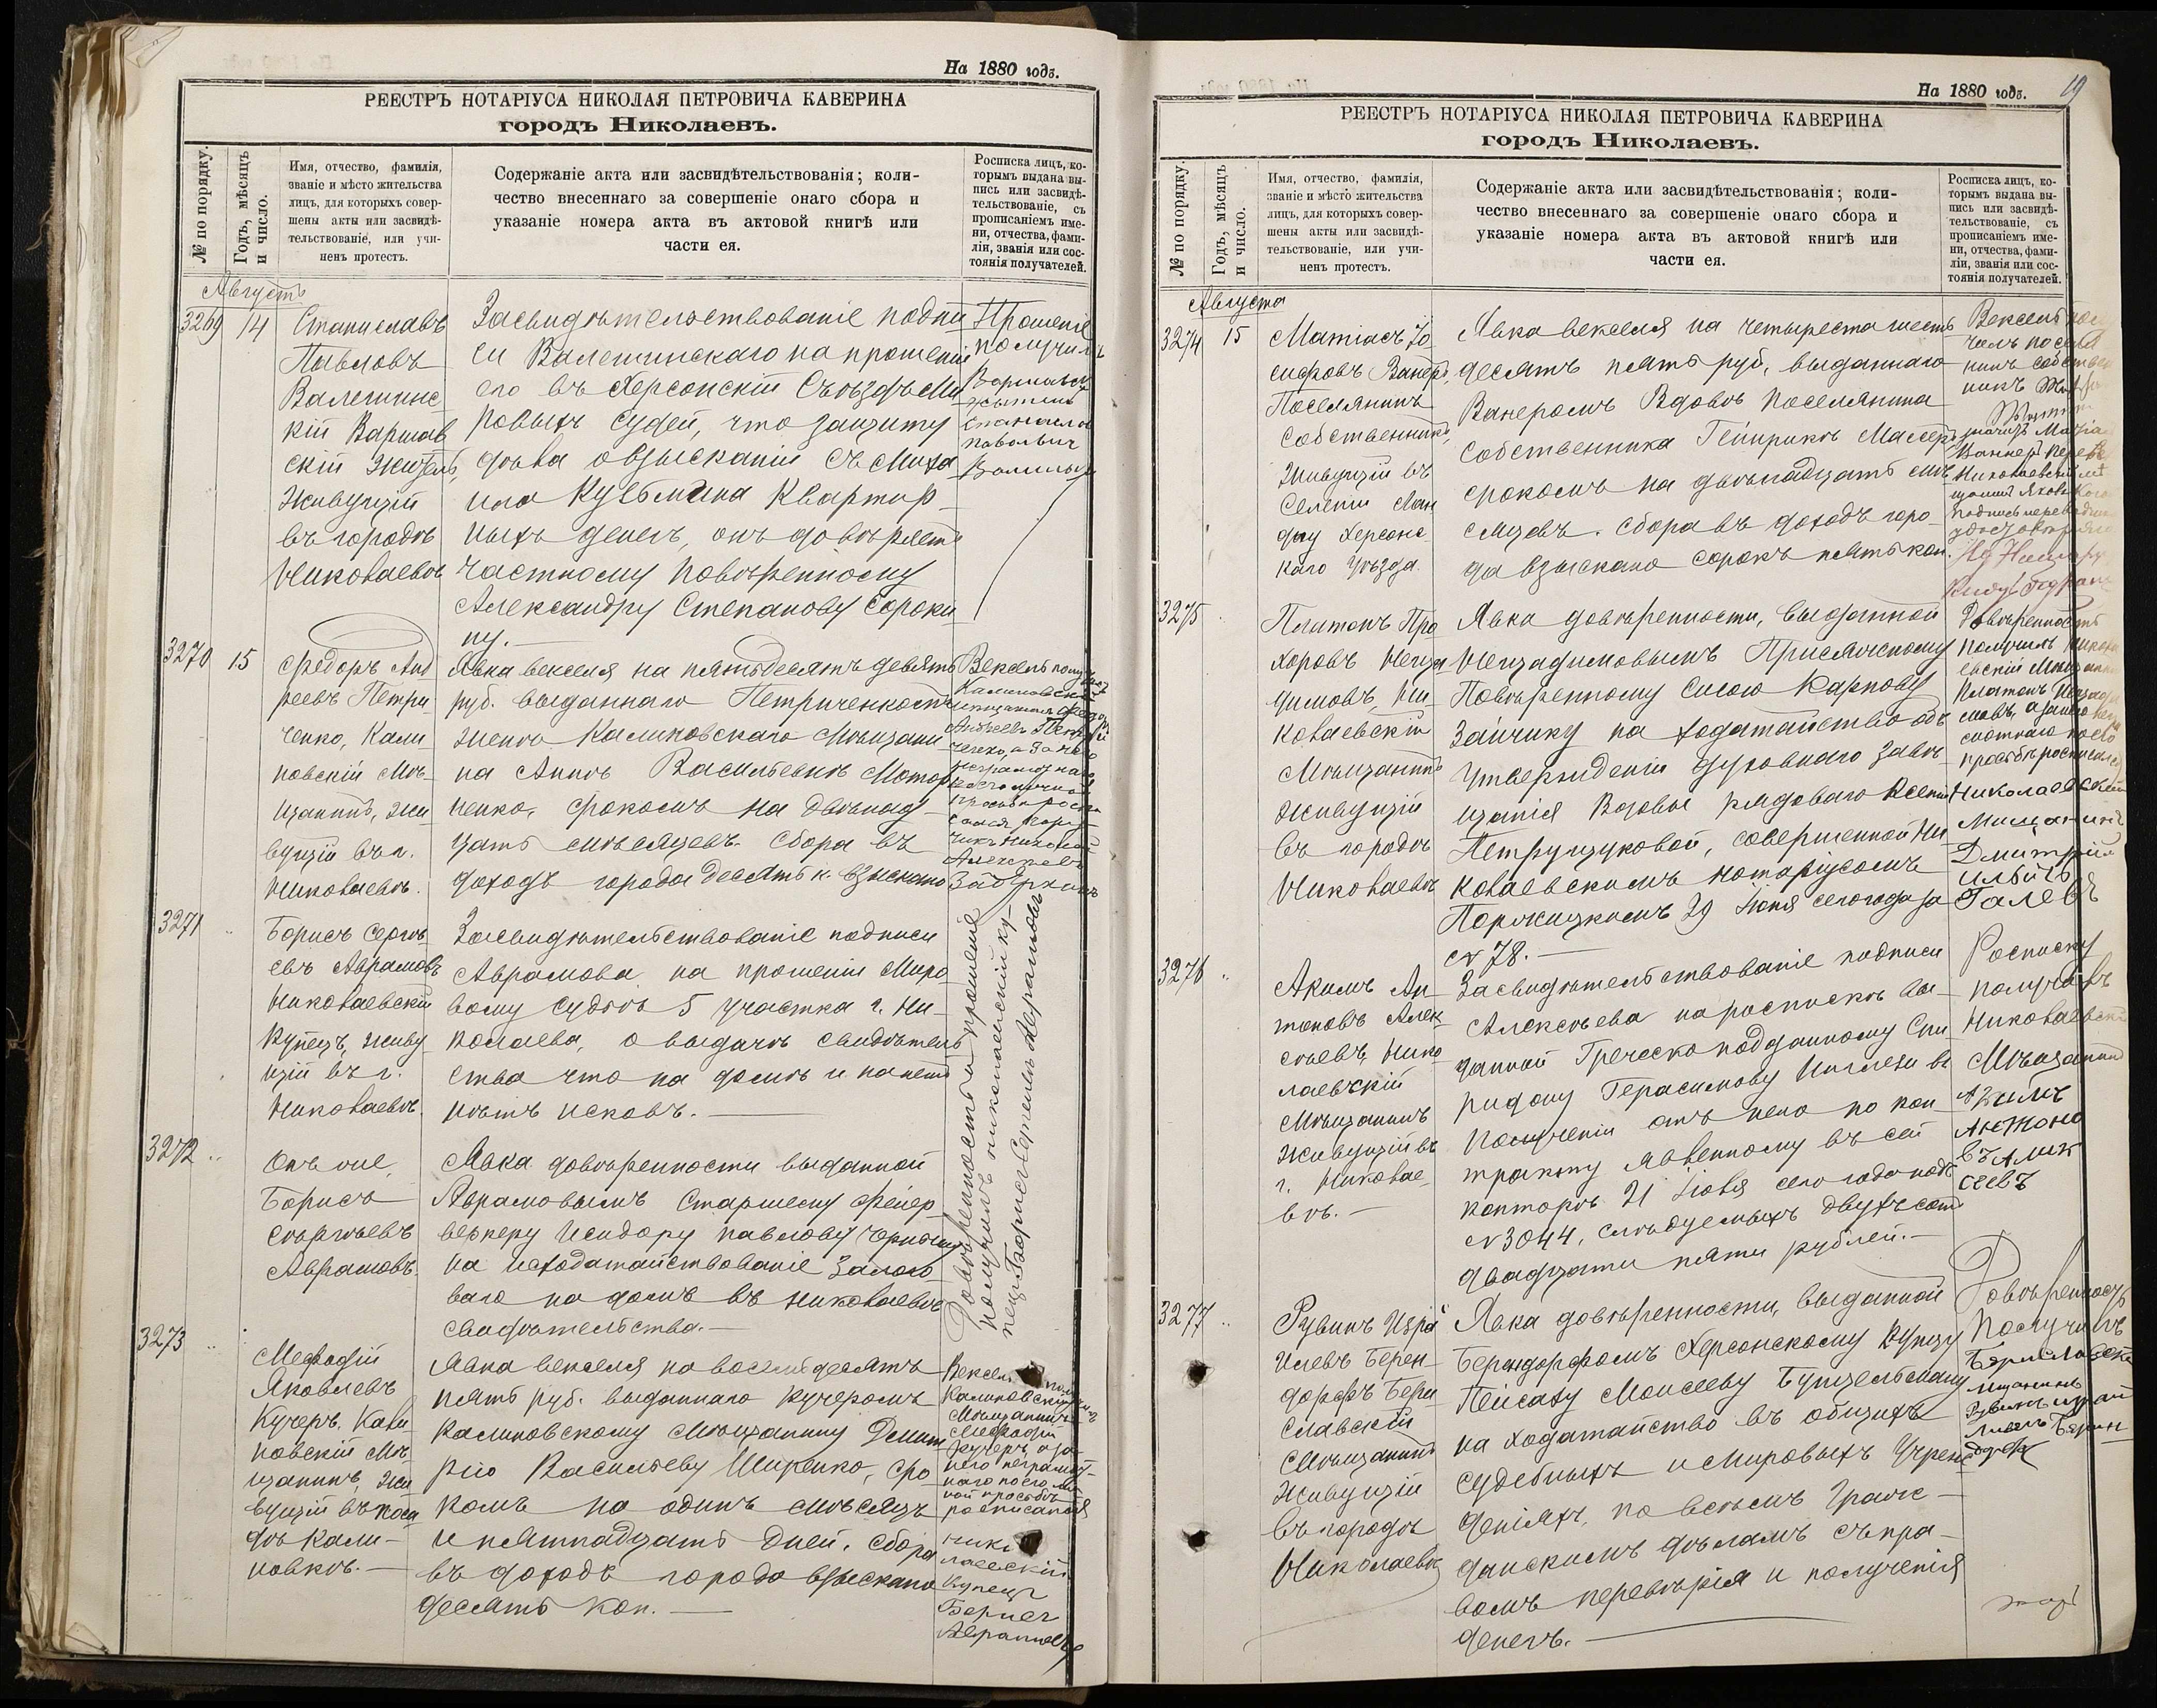 На 1880 годъ.
РЕЕСТРЪ НОТАРІУСА НИКОЛАЯ ПЕТРОВИЧА КАВЕРИНА
городъ Николаевъ.
№ по порядку.
Годъ, мѣсяцъ
и число.
Имя, отчество, фамилія,
званіе и мѣсто жительства
лицъ, для которыхъ совер-
шены акты или засвидѣ-
тельствованіе, или учи-
ненъ протестъ.
Содержаніе акта или засвидѣтельствованія; коли-
чество внесеннаго за совершеніе онаго сбора и
указаніе номера акта въ актовой книгѣ или
части ея.
Росписка лицъ, ко-
торымъ выдана вы-
пись или засвидѣ-
тельствованіе, съ
прописаніемъ име-
ни, отчества, фами-
ліи, званія или сос-
тоянія получателей.
Августъ
3269
14
Станиславъ
Павловъ
Валешинс
кій Варшав
скій житель,
живущій
въ городѣ
Николаевѣ
Засвидѣтельствованіе подпи
си Валешинскаго на прошеніи
его въ Херсонскій Съѣздъ Ми
ровыхъ Судей, что защиту
дѣла о взысканіи съ Миха
ила Кузьмина Квартир-
ныхъ денегъ, онъ довѣряетъ
частному повѣренному
Александру Степанову Сороки
ну.
Прошеніе
получилъ
3270
15
Федоръ Анд
реевъ Петри-
ченко, Кали
новскій Мѣ-
щанинъ, жи-
вущій въ г.
Николаевѣ.
Явка векселя на пятьдесятъ девять
руб. выданнаго Петриченкомъ
женѣ Калиновскаго Мѣщани
на Аннѣ Васильевнѣ
ненко, срокомъ на двѣнад-
цать мѣсяцевъ. Сбора въ
доходъ города десять к. взыскано
Вексель получилъ
Калиновскій
мѣщанинъ Федоръ
Андреевъ Петри
ченко, а за него
неграмотнаго
по его личной
просьбѣ роспи
сался
3271
Борисъ Сергѣ-
евъ Аврамовъ
Николаевскій
Купецъ, живу-
щій въ г.
Николаевѣ.
Засвидѣтельствованіе подписи
Аврамова на прошеніи Миро
вому Судьѣ 5 участка г. Ни-
колаева, о выдачѣ свидѣтель
ства что на домѣ и на немъ
нѣтъ исковъ.
Довѣренность и прошеніе
получилъ николаевскій ку-
пецъ Борисъ Сергѣевъ Аврамовъ
3272
Онъ же,
Борисъ
Сергѣевъ
Аврамовъ.
Явка довѣренности выданной
Аврамовымъ Старшему Фейер-
веркеру Исидору Павлову
на исходатайствованіе Залого-
ваго на домъ въ Николаевѣ
свидѣтельства.
3273
Мефодій
Яковлевъ
Кучеръ, Кали
новскій Мѣ-
щанинъ, жи
вущій въ поса
дѣ Кали-
новкѣ.
Явка векселя на восемьдесятъ
пять руб. выданнаго Кучеромъ
Калиновскому Мѣщанину Дмит
рію Васильеву Ширенко, сро
комъ на одинъ мѣсяцъ
и пятнадцать дней. Сбора
въ доходъ города взыскано
десять коп.
Калиновскій
Мѣщанинъ
Мефодій
Кучеръ, а за
него неграмот-
наго по его лич
ной просьбѣ
росписался
Нико
лаевскій
Купецъ
Борисъ
Аврамовъ
На 1880 годъ.
19
РЕЕСТРЪ НОТАРІУСА НИКОЛАЯ ПЕТРОВИЧА КАВЕРИНА
городъ Николаевъ.
№ по порядку.
Годъ, мѣсяцъ
и число.
Имя, отчество, фамилія,
званіе и мѣсто жительства
лицъ, для которыхъ совер-
шены акты или засвидѣ-
тельствованіе, или учи-
ненъ протестъ.
Содержаніе акта или засвидѣтельствованія; коли-
чество внесеннаго за совершеніе онаго сбора и
указаніе номера акта въ актовой книгѣ или
части ея.
Росписка лицъ, ко-
торымъ выдана вы-
пись или засвидѣ-
тельствованіе, съ
прописаніемъ име-
ни, отчества, фами-
ліи, званія или сос-
тоянія получателей.
Августа
3274
15
Матіасъ Іо
сифовъ Ванеръ,
Поселянинъ
Собственникъ,
живущій въ
Селеніи Лан
дау Херсонс
каго Уѣзда.
Явка векселя на четыреста шесть
десятъ пять руб., выданнаго
Ванеромъ Вдовѣ поселянина
Собственника Гейнрихѣ
срокомъ на двѣнадцать мѣ
сяцевъ. Сбора въ доходъ горо-
да взыскано сорокъ пять коп.
3275
Платонъ Про
хоровъ Незаде
димовъ, Ни-
колаевскій
Мѣщанинъ
живущій
въ городѣ
Николаевѣ
Явка довѣренности, выданной
Присяжному
Повѣренному Сысою Карпову
Зайчику на ходатайство объ
утвержденіи духовнаго завѣ
щанія Вдовы рядоваго
Петрунчуковой, совершенной Ни
колаевскимъ нотаріусомъ
29 Іюня сего года за
№ 78.
Довѣренность
получилъ Никола
евскій Мѣщанинъ
Платонъ
Николаевскій
Мищанинъ
Дмитрій
Ильинъ
Галевъ
3276
Акимъ Ан-
тоновъ Алек-
сѣевъ, Нико
лаевскій
Мѣщанинъ
живущій въ
г. Николае-
вѣ.
Засвидѣтельствованіе подписи
Алексѣева на роспискѣ вы-
данной Греческо подданному Спи
ридону Герасимову Инглези въ
полученіи отъ него по кон-
тракту явленному въ сей
конторѣ 21 Іюля сего года подъ
№ 3044, слѣдуемыхъ двухъ сотъ
двадцати пяти рублей.
Росписку
получилъ
Николаевскій
Мѣщанинъ
Акимъ
Антоно
въ Алек
сеевъ
3277
Рувинъ Изра
илевъ Берен-
дорфъ Бери
славскій
Мѣщанинъ
живущій
въ городѣ
Николаевѣ
Явка довѣренности, выданной
Берендорфомъ Херсонскому Купцу
Пейсаху Моисееву Бунцельману
на ходатайство въ общихъ
судебныхъ и Мировыхъ Учреж
деніяхъ, по всѣмъ Граж-
данскимъ дѣламъ съ пра-
вомъ перевѣрія и полученія
денегъ.
Довѣренность
получилъ
Бериславскій
мщанинъ
Рувинъ Израй
левъ Берен
дорф